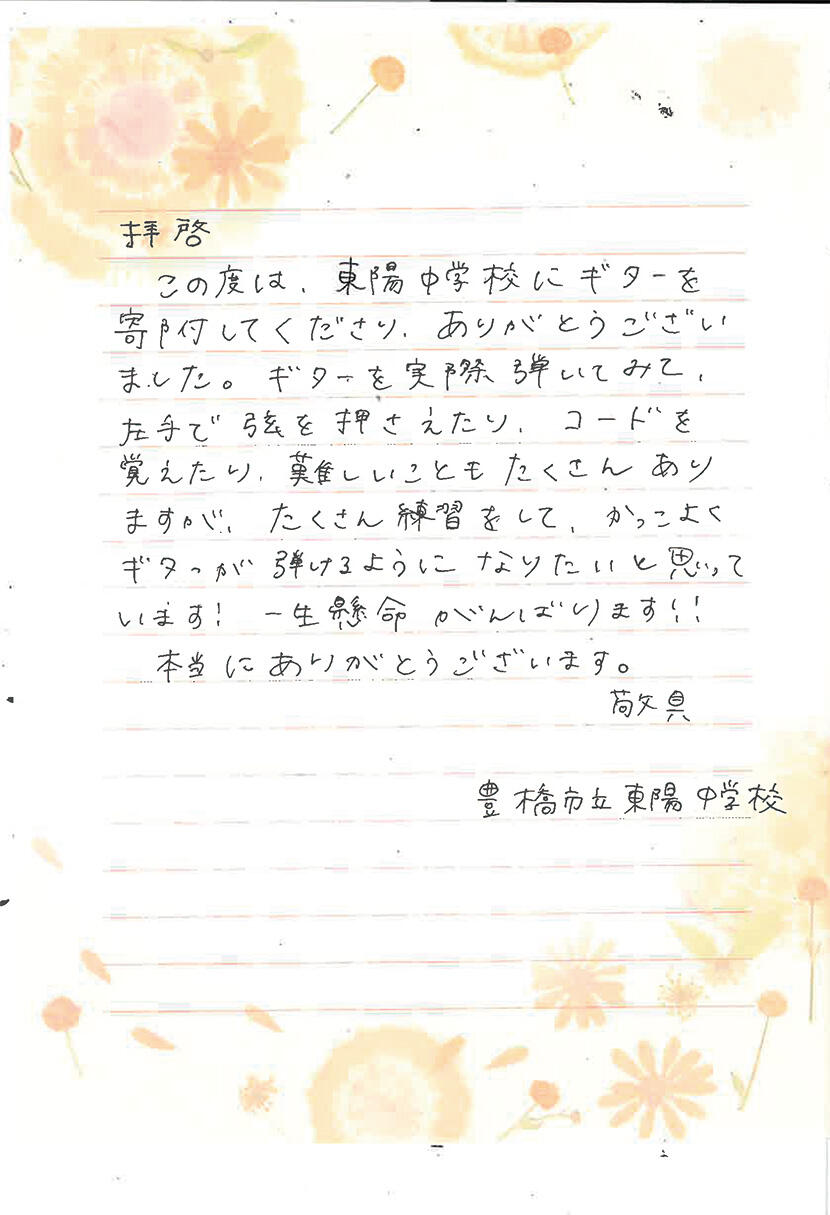 拝啓
この度は、東陽中学校にギターを
寄付してくださり、ありがとうござい
ました。ギターを実際弾いてみて、
左手で弦を押さえたり、コードを
覚えたり、難しいこともたくさんあり
ますが、たくさん練習をして、かっこよく
ギターが弾けるようになりたいと思って
います！一生懸命がんばります！！
本当にありがとうございます。
敬具
豊橋市立東陽中学校